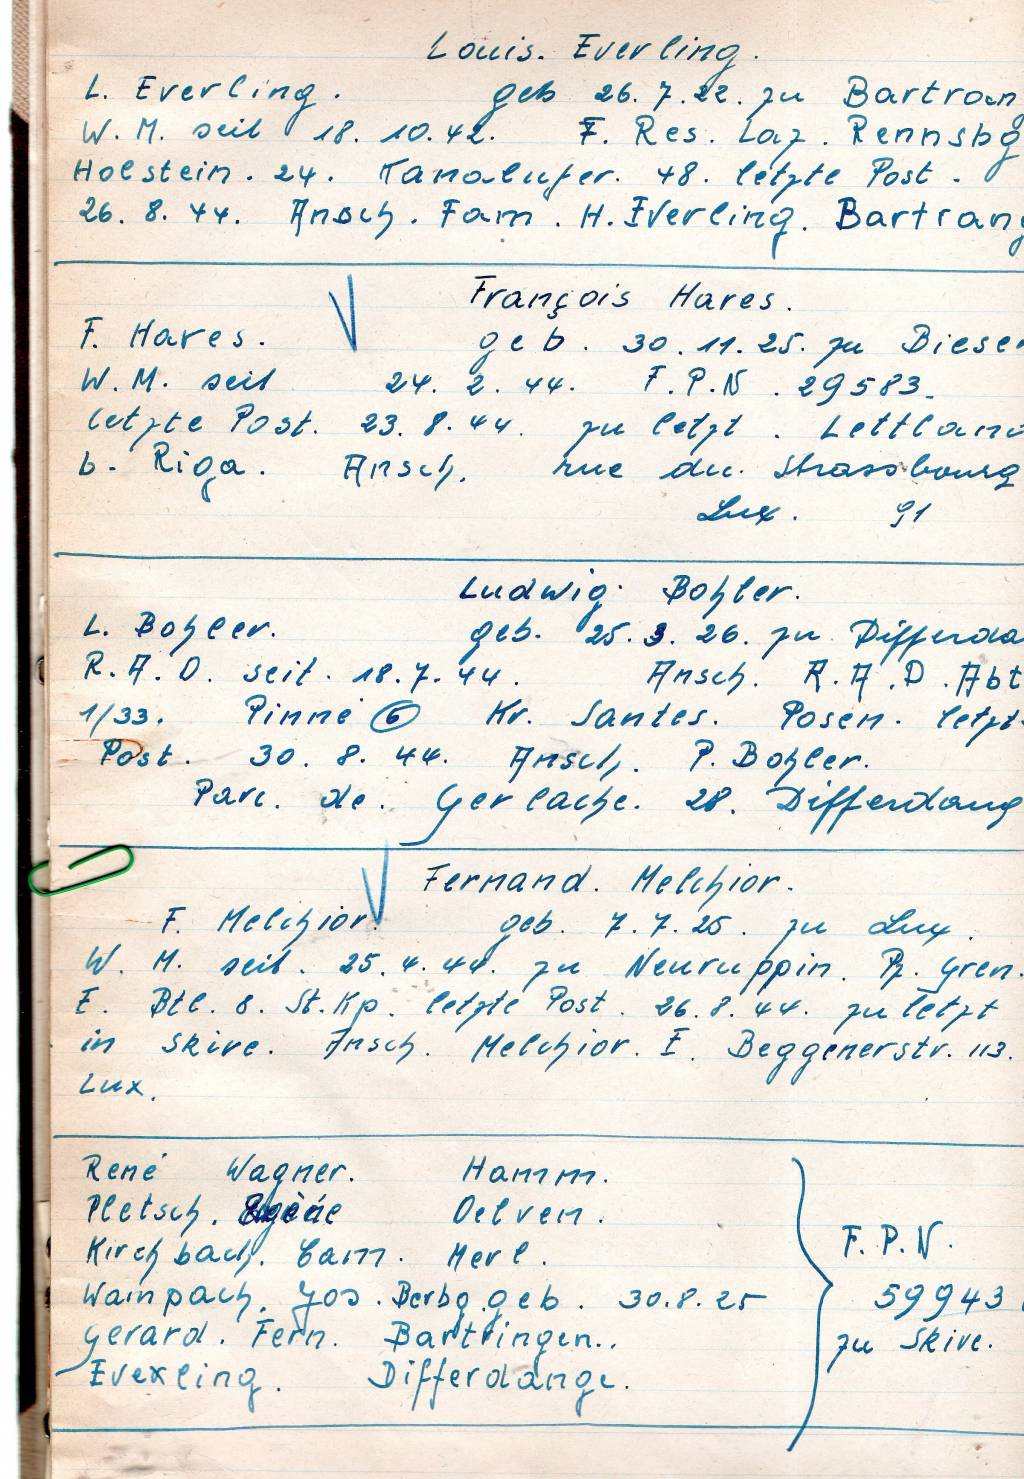 Louis. Everling.
L. Everling. geb 26.7.22. zu Bartran
W.M. seit 18.10.42. F. Res. Laz. Rennsbg
Holstein. 24. Kanalufer. 48. letzte Post.
26.8.44. Ansch. Fam. H. Everling. Bartrang
François Hares.
F. Hares. geb. 30.11.25. zu Biesen
W.M. seit 24.2.44. F.P.N. 29583.
letzte Post. 23.8.44. zu letzt. Lettland
b. Riga. Ansch. rue du. Strassbourg
Lux. 91
Ludwig Bohler.
L. Bohler. geb. 25.3.26. zu Differda
R.A.D. seit. 18.7.44. Ansch. R.A.D. Abt
1/33. Pinne 6 Kr. Santes. Posen. letzt
Post. 30.8.44. Ansch. P. Bohler.
Parc. de. Gerlache. 28. Differdang
Fernand. Melchior.
F. Melchior. geb. 7.7.25. zu Lux.
W.M. seit. 25.4.44. zu Neuruppin. Pz. Gren.
E. Btl. 8. St.Kp. letzte Post. 26.8.44. zu letzt
in Skive. Ansch. Melchior. E. Beggenerstr. 113.
Lux.
René Wagner. Hamm.
Pletsch. Oelven.
Kirchbach. Cam. Merl.
Wampach. Jos. Berbg. geb. 30.8.25
Gerard. Fern. Bartringen..
Everling. Differdange.
F.P.N.
59943
zu Skive.